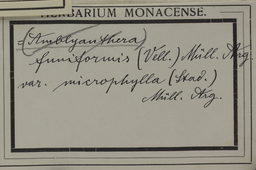 HERBARIUM MONACENSE.
= (Amblyanthera)
funiformis (Vell.) Müll. Arg.
var. microphylla (Stad.)
Müll. Arg.